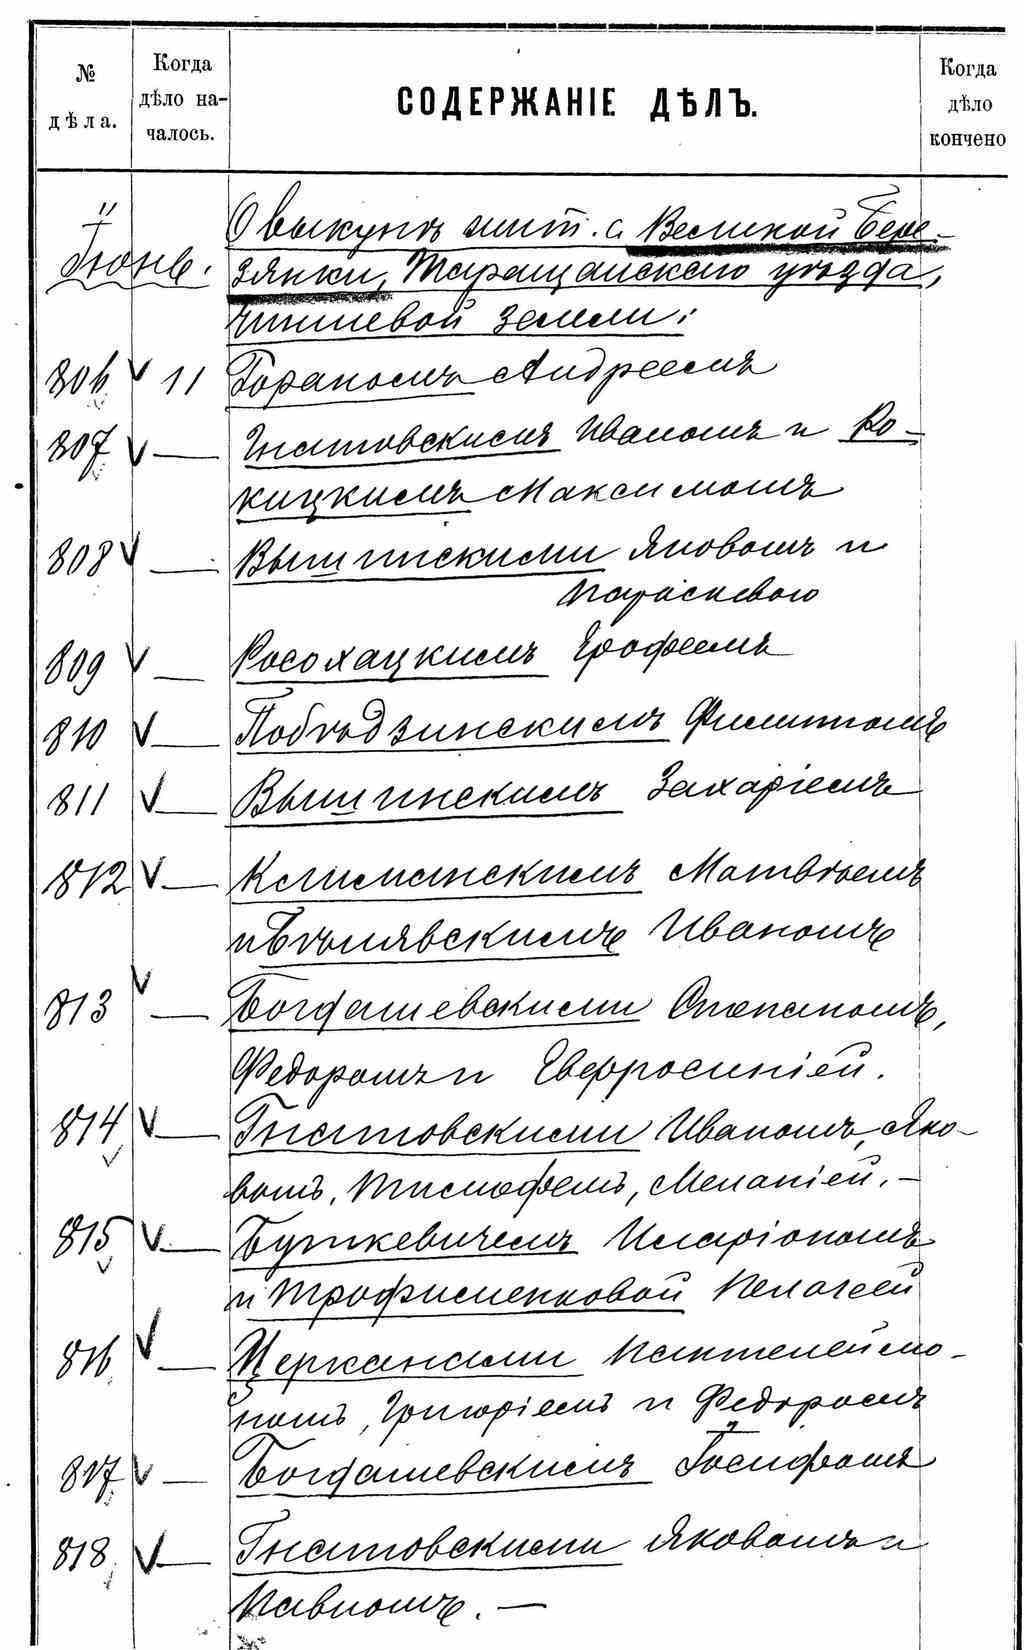 № дѣла.
Когда дѣло началось.
СОДЕРЖАНІЕ ДѢЛЪ.
Когда дѣло кончено
"
Іюнь.
О выкупѣ жит. с. Великой Бере-
зянки, Таращанскаго уѣзда,
чиншевой земли:
806 v 11 Бараномъ Андреемъ
807 v — Гнатовскимъ Иваномъ и Ро-
кицкимъ Максимомъ
808 v — Вышинскими Яковомъ и
Параскевою
809 v — Росохацкимъ Ерофеемъ
810 v — Побѣдзинскимъ Филиппомъ
811 v — Вышинскимъ Захаріемъ
812 v — Климанскимъ Матвѣемъ
и Бѣлявскимъ Иваномъ
813 v — Богдашевскими Степаномъ,
Федоромъ и Евфросиніей.
814 v — Гнатовскими Иваномъ, Яко-
вомъ, Тимофеемъ, Меланіей. —
815 v — Буткевичемъ Иларіономъ
и Трофименковой Пелагеей
816 v — Церканами Пантелеймо-
номъ, Григоріемъ и Федоромъ
817 v — Богдашевскимъ Іосифомъ
818 v — Гнатовскими Яковомъ и
Павломъ. —